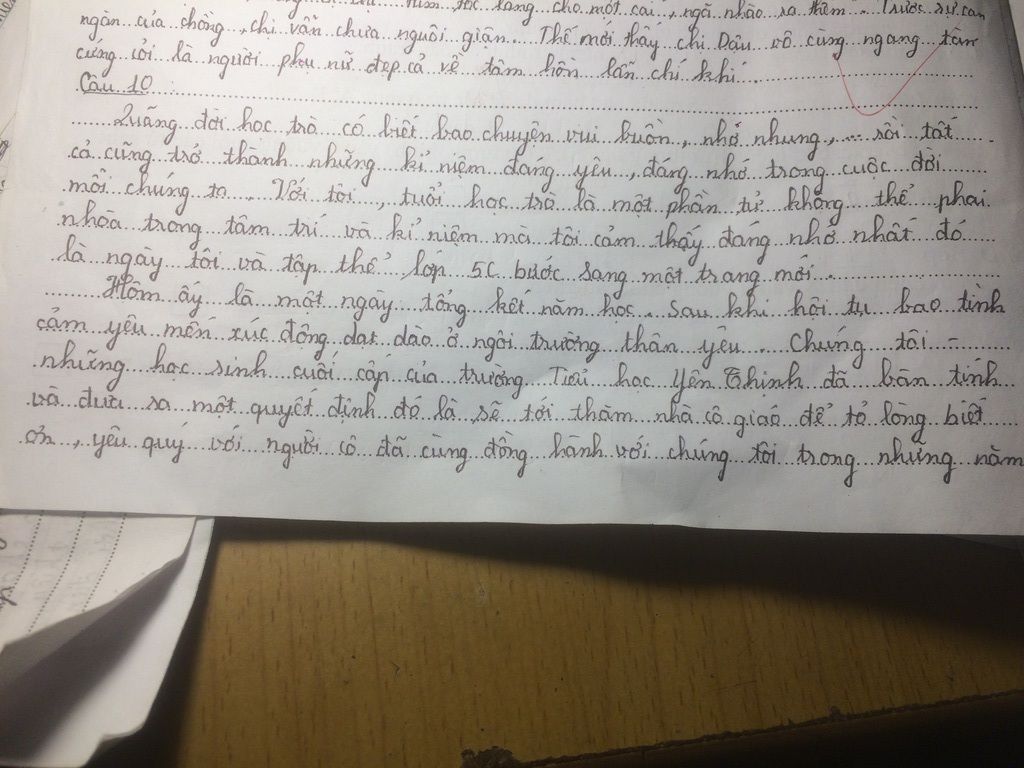 túm tóc lẳng cho một cái, ngã nhào ra thềm. Trước sự can
ngăn của chồng, chị vẫn chưa nguôi giận. Thế mới thấy chị Dậu vô cùng ngang tàn
cứng cỏi là người phụ nữ đẹp cả về tâm hồn lẫn chí khí.
Câu 10:
Quãng đời học trò có biết bao chuyện vui buồn, nhớ nhung,... rồi tất
cả cũng trở thành những kỉ niệm đáng yêu, đáng nhớ trong cuộc đời
mỗi chúng ta. Với tôi, tuổi học trò là một phần tử không thể phai
nhòa trong tâm trí và kỉ niệm mà tôi cảm thấy đáng nhớ nhất đó
là ngày tôi và tập thể lớp 5C bước sang một trang mới.
Hôm ấy là một ngày tổng kết năm học. Sau khi hội tụ bao tình
cảm yêu mến xúc động dạt dào ở ngôi trường thân yêu. Chúng tôi -
những học sinh cuối cấp của trường Tiểu học Yên Thịnh đã bàn tính
và đưa ra một quyết định đó là sẽ tới thăm nhà cô giáo để tỏ lòng biết
ơn, yêu quý với người cô đã cùng đồng hành với chúng tôi trong những năm